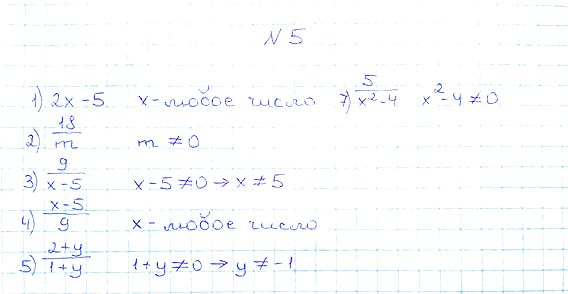 № 5
1) 2x - 5 x - любое число 7) 5/(x² - 4) x² - 4 ≠ 0
2) 18/m m ≠ 0
3) 9/(x - 5) x - 5 ≠ 0 → x ≠ 5
4) (x - 5)/9 x - любое число
5) (2 + y)/(1 + y) 1 + y ≠ 0 → y ≠ -1